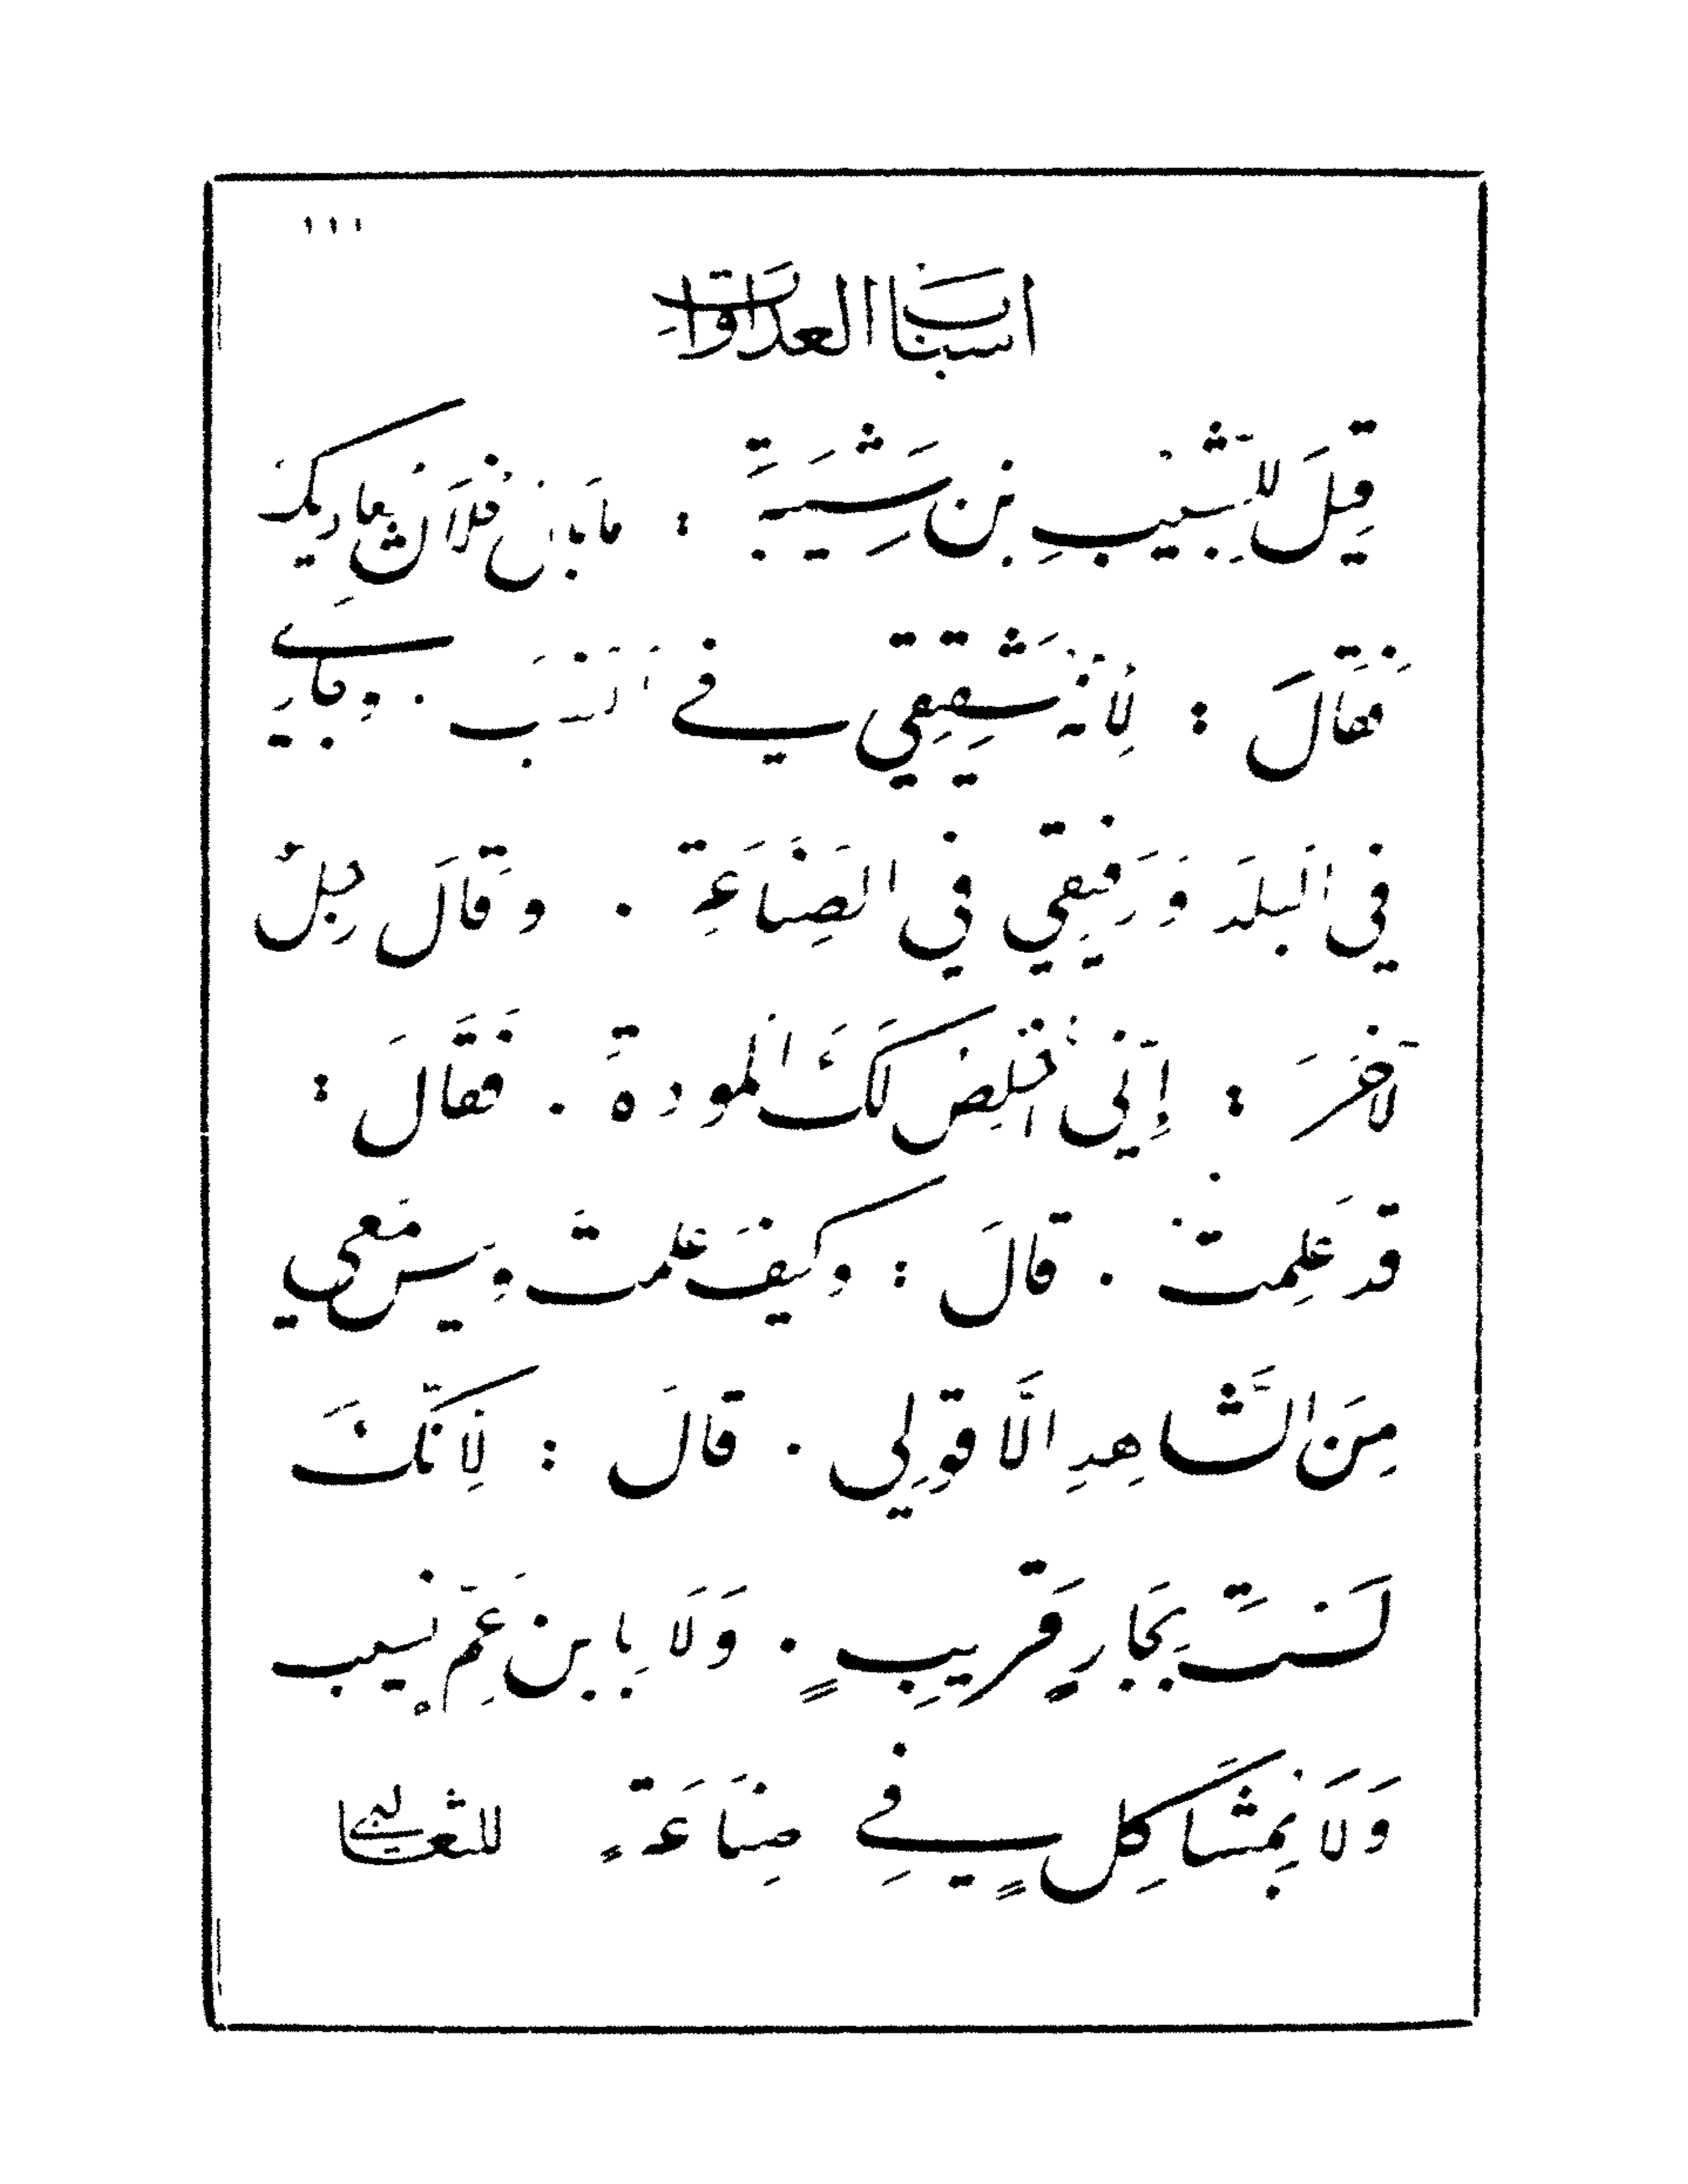 ١١١
اسباب العداوات
قِيلَ لِشَبِيبِ بْنِ شَيْبَةَ : مَا بَالُ فُلَانٍ يُعَادِيكَ
فَقَالَ : لِأَنَّهُ شَقِيقِي فِي النَّسَبِ . وَجَارِي
فِي الْبَلَدِ وَرَفِيقِي فِي الصِّنَاعَةِ . وَقَالَ رَجُلٌ
لِآخَرَ : إِنِّي أُخْلِصُ لَكَ الْمَوَدَّةَ . فَقَالَ :
قَدْ عَلِمْتُ . قَالَ : وَكَيْفَ عَلِمْتَ وَلَيْسَ مَعِي
مِنَ الشَّاهِدِ إِلَّا قَوْلِي . قَالَ : لِأَنَّكَ
لَسْتَ بِجَارٍ قَرِيبٍ . وَلَا بِابْنِ عَمٍّ نَسِيبٍ
وَلَا بِمُشَاكِلٍ فِي صِنَاعَةٍ للثعالبي